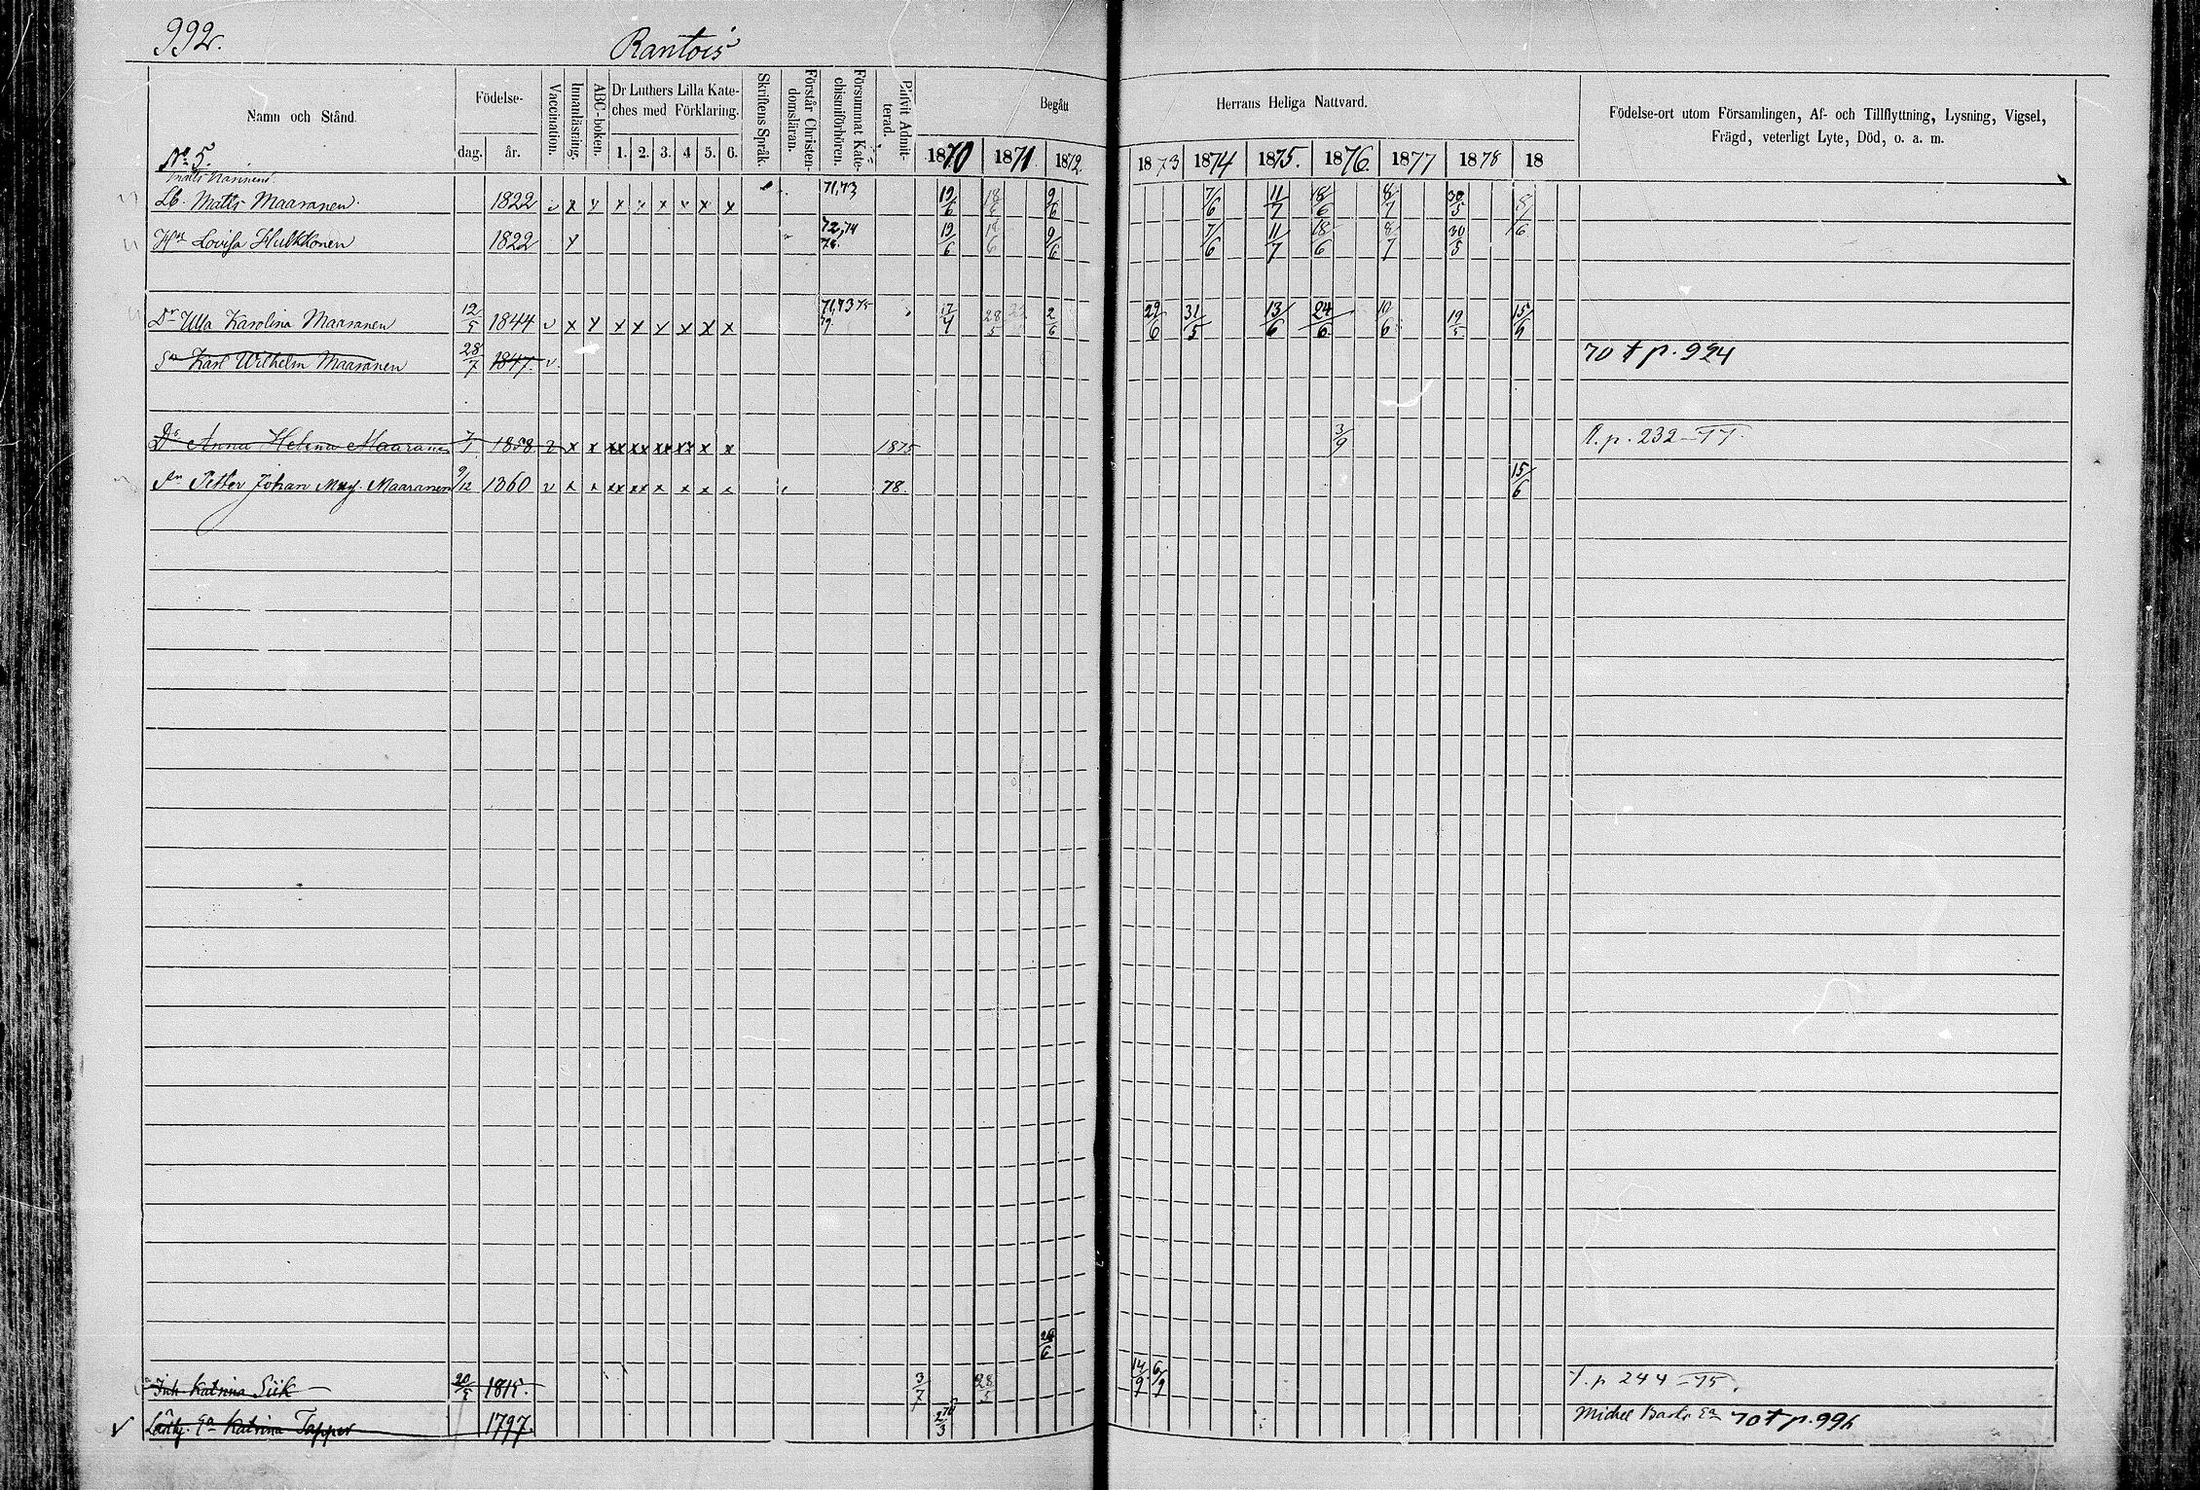 992.
Rantois
Namn och Stånd.
Födelse-
dag.
år.
Vaccination.
Innanläsning.
ABC-boken.
Dr Luthers Lilla Kate-
ches med Förklaring.
1. 2. 3. 4 5. 6.
Skriftens Språk.
Förstår Christen-
domsläran.
Försummat Kate-
chismiförhören.
Blifvit Admit-
terad.
Begått
Herrans Heliga Nattvard.
1870 1871 1872. 1873 1874 1875. 1876. 1877 1878 18
Födelse-ort utom Församlingen, Af- och Tillflyttning, Lysning, Vigsel,
Frägd, veterligt Lyte, Död, o. a. m.
No 5.
Lb. Matts Maaranen. 1822 v x x x x x x x x 71,73 19/6 18/6 9/6 7/6 11/7 18/6 8/7 30/5 8/6
Hu Lovisa Hulkkonen 1822 x 72,74 78. 19/6 18/6 9/6 7/6 11/7 18/6 8/7 30/5
Dr Ulla Karolina Maaranen 12/5 1844 v x x x x x x x x 71,73 75 79 17/4 28/5 2/6 29/6 31/5 13/6 24/6 10/6 19/5 15/6
Sn Karl Wilhelm Maaranen 28/7 1847. v. 70 † p. 994
Dr Anna Helena Maaranen 7/1 1858 v x x xx xx xx xx x x 1875 3/9 R. p. 232 - 77.
Sn Petter Johan Maaranen 9/12 1860 v x x xx xx x x x x 78. 15/6
24/6
Inh Katrina Siik 20/5 1815. 3/7 28/5 14/9 6/9 p 244 - 75.
Enka Katrina Tapper 1797. 2/3 Michel 70 † p. 996